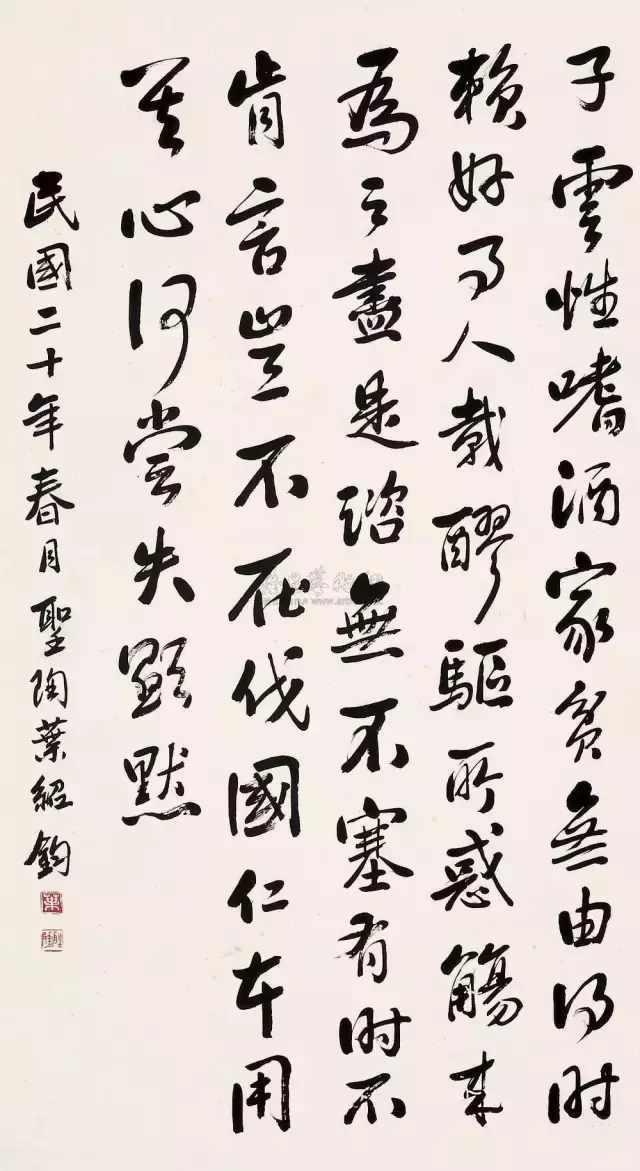 子雲性嗜酒家貧無由得時
賴好事人載醪驅所惑觴來
為之盡是諮無不塞有時不
肯言豈不在伐國仁者用
其心何嘗失顯默
民國二十年春月聖陶葉紹鈞